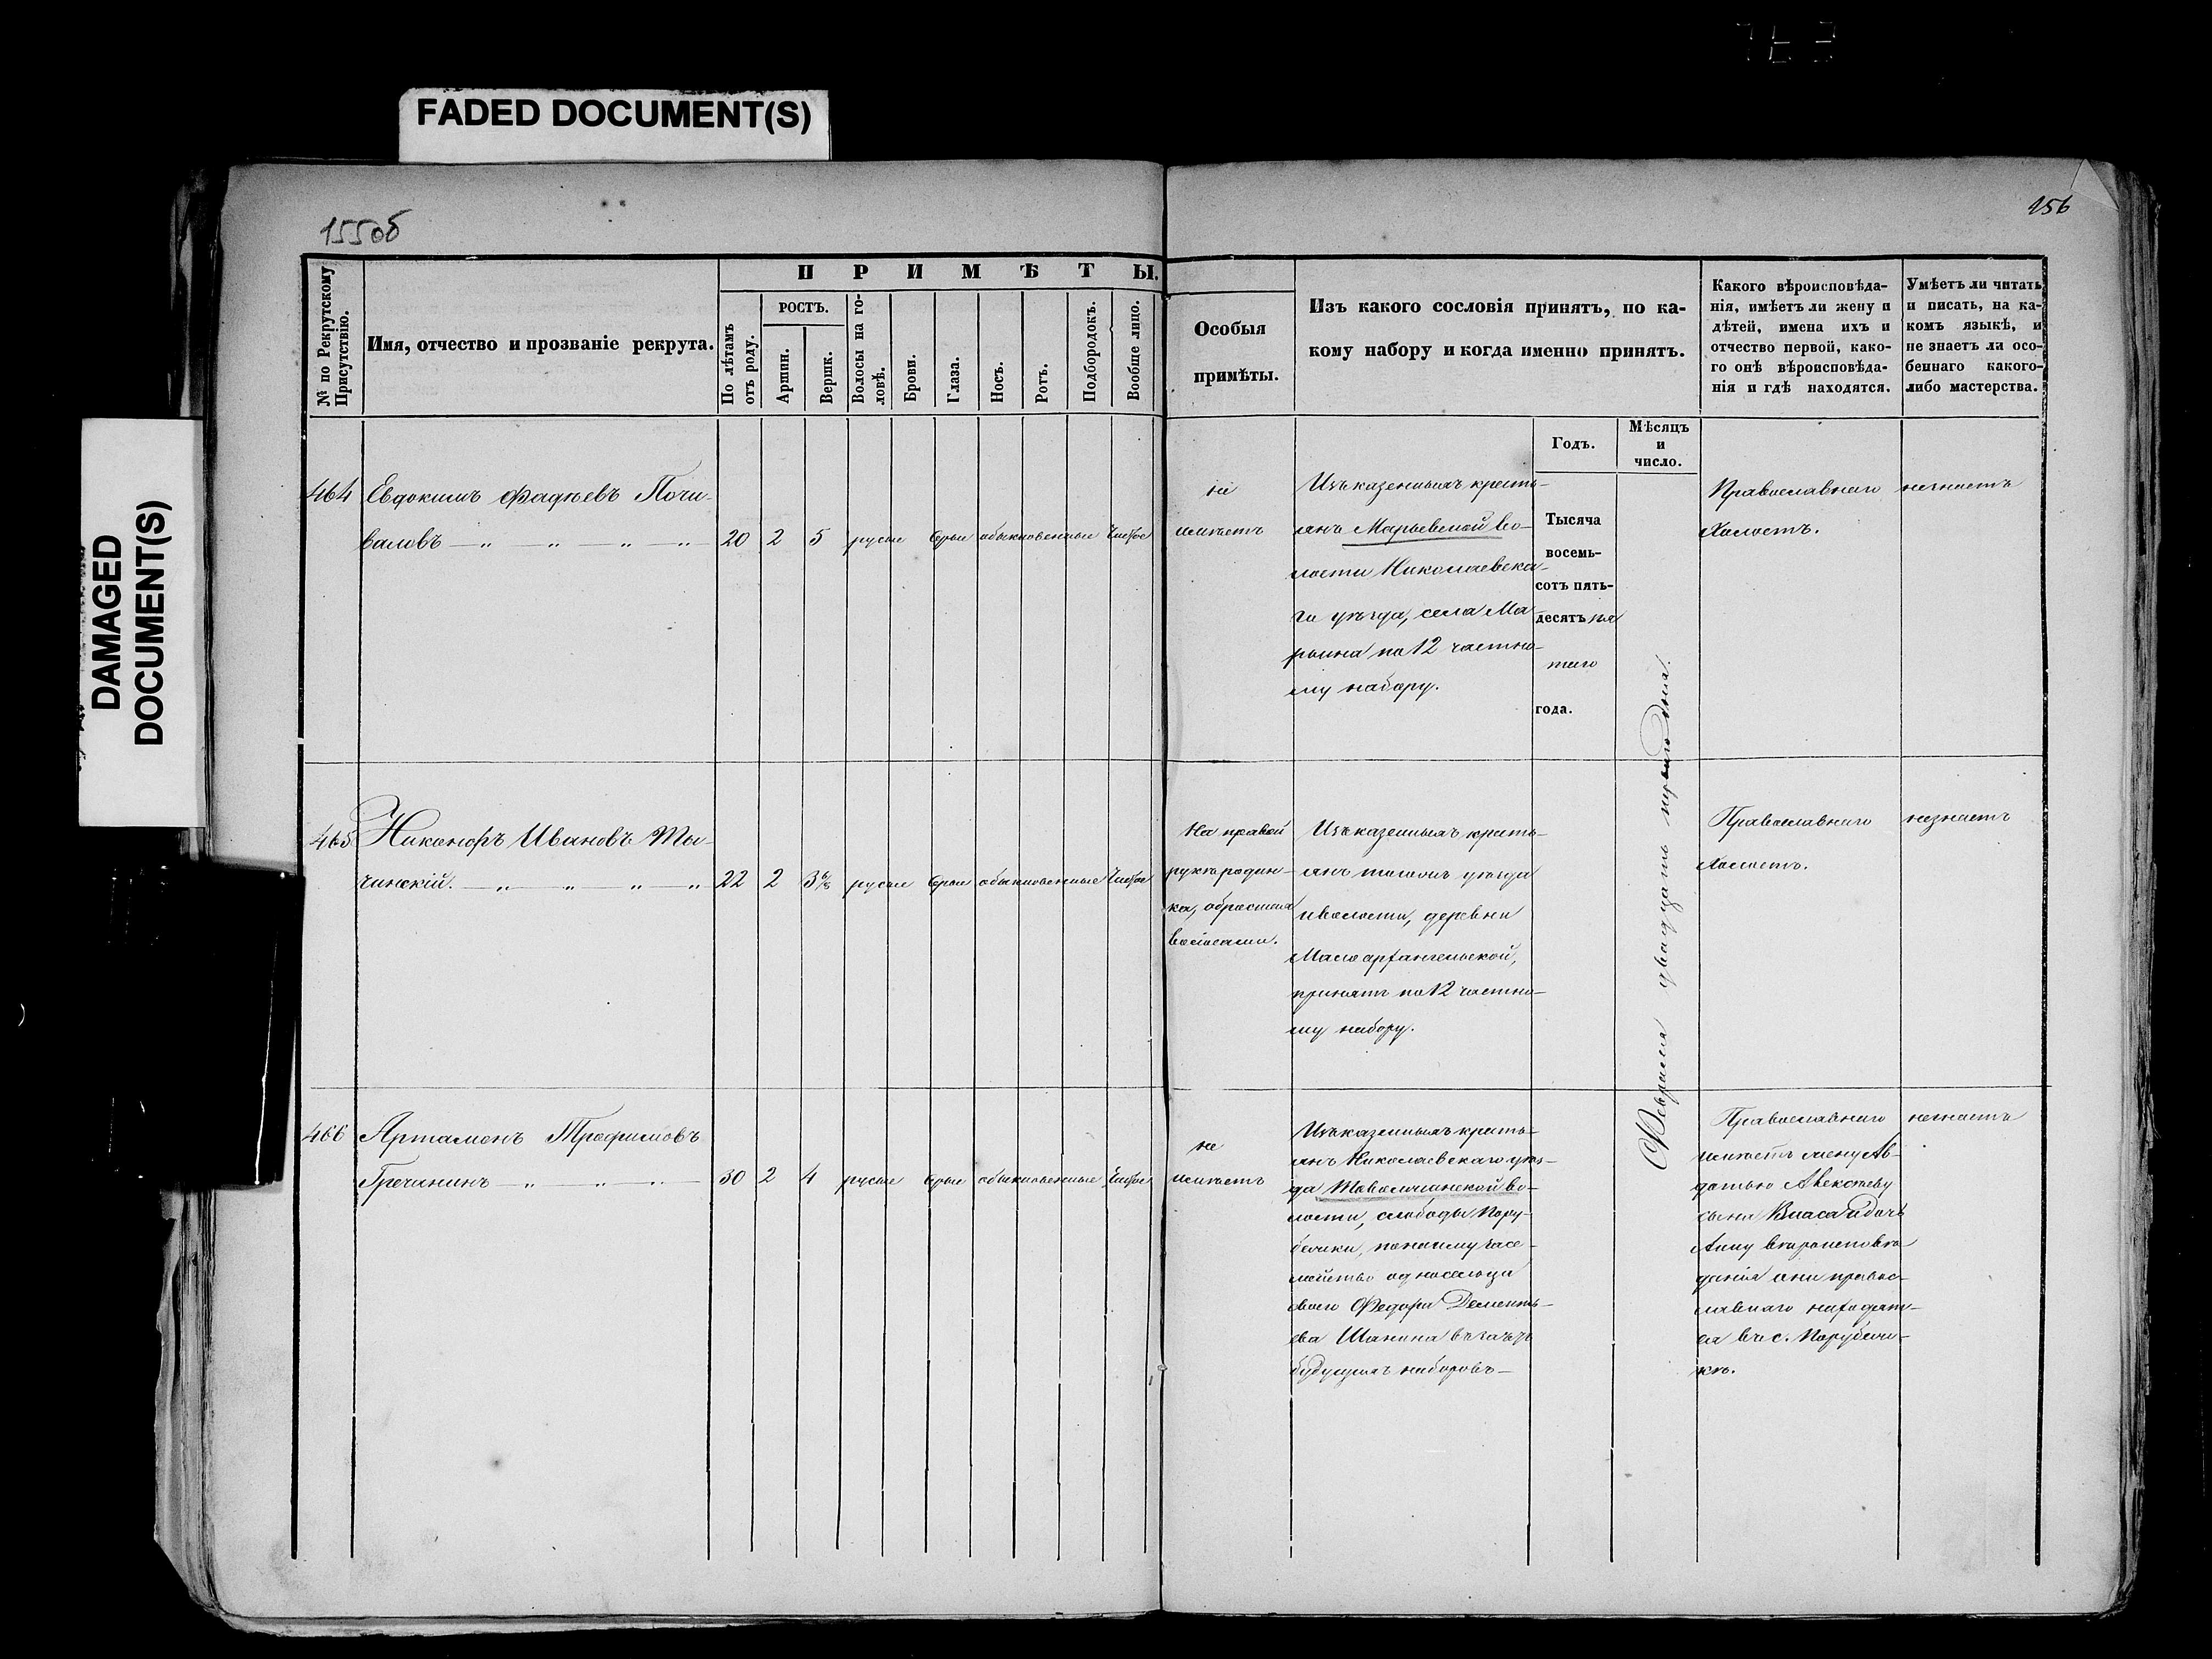 FADED DOCUMENT(S)
DAMAGED
DOCUMENT(S)
155об
156
П Р И М Ѣ Т Ы.
№ по Рекрутскому
Присутствію.
Имя, отчество и прозваніе рекрута.
По лѣтамъ
отъ роду.
РОСТЪ.
Аршин.
Вершк.
Волосы на го-
ловѣ.
Брови.
Глаза.
Носъ.
Ротъ.
Подбородокъ.
Вообще лицо.
Особыя
примѣты.
Изъ какого сословія принятъ, по ка-
кому набору и когда именно принятъ.
Какого вѣроисповѣда-
нія, имѣетъ ли жену и
дѣтей, имена ихъ и
отчество первой, како-
го онѣ вѣроисповѣда-
нія и гдѣ находятся.
Умѣетъ ли читать
и писать, на ка-
комъ языкѣ, и
не знаетъ ли осо-
беннаго какого-
либо мастерства.
Годъ.
Мѣсяцъ
и
число.
464
Евдокимъ Фадѣевъ Почи-
валовъ — „ — „ — „ — „
20 2 5 русые сѣрые обыкновенные чистое
не
имѣетъ
Изъ казенныхъ кресть-
янъ Марьевской во-
лости Николаевска-
го уѣзда, села Ма-
рьина по 12 частно-
му набору.
Тысяча
восемь-
сотъ пять-
десятъ пя
таго
года.
Февраля двадцать перваго дня.
Православнаго
Холостъ.
незнаетъ
465
Никаноръ Ивановъ Ты-
чинскій. — „ — „ — „ — „
22 2 3 6/8 русые сѣрые обыкновенные чистое
На правой
рукѣ родин-
ка, обросшая
волосами.
Изъ казенныхъ кресть-
янъ тогожъ уѣзда
и волости, деревни
Мало архангельской,
принятъ по 12 частно-
му набору.
Православнаго
Холостъ.
незнаетъ
466
Артамонъ Трофимовъ
Гречанинъ — „ — „ — „ —
30 2 4 русые сѣрые обыкновенные чистое
не
имѣетъ
Изъ казенныхъ кресть-
янъ Николаевскаго уѣз-
да Таволжанской во-
лости, слободы Пору-
бежки, по найму за се-
мейство односельца
своего Федора Дементь-
ева Шанина въ зачетъ
будущихъ наборовъ —
Православнаго
имѣетъ жену Ав-
дотью Алексѣеву
сына Власа и дочь
Анну вѣроисповѣ
данія они правос-
лавнаго находят-
ся въ с. Порубеж-
кѣ.
незнаетъ